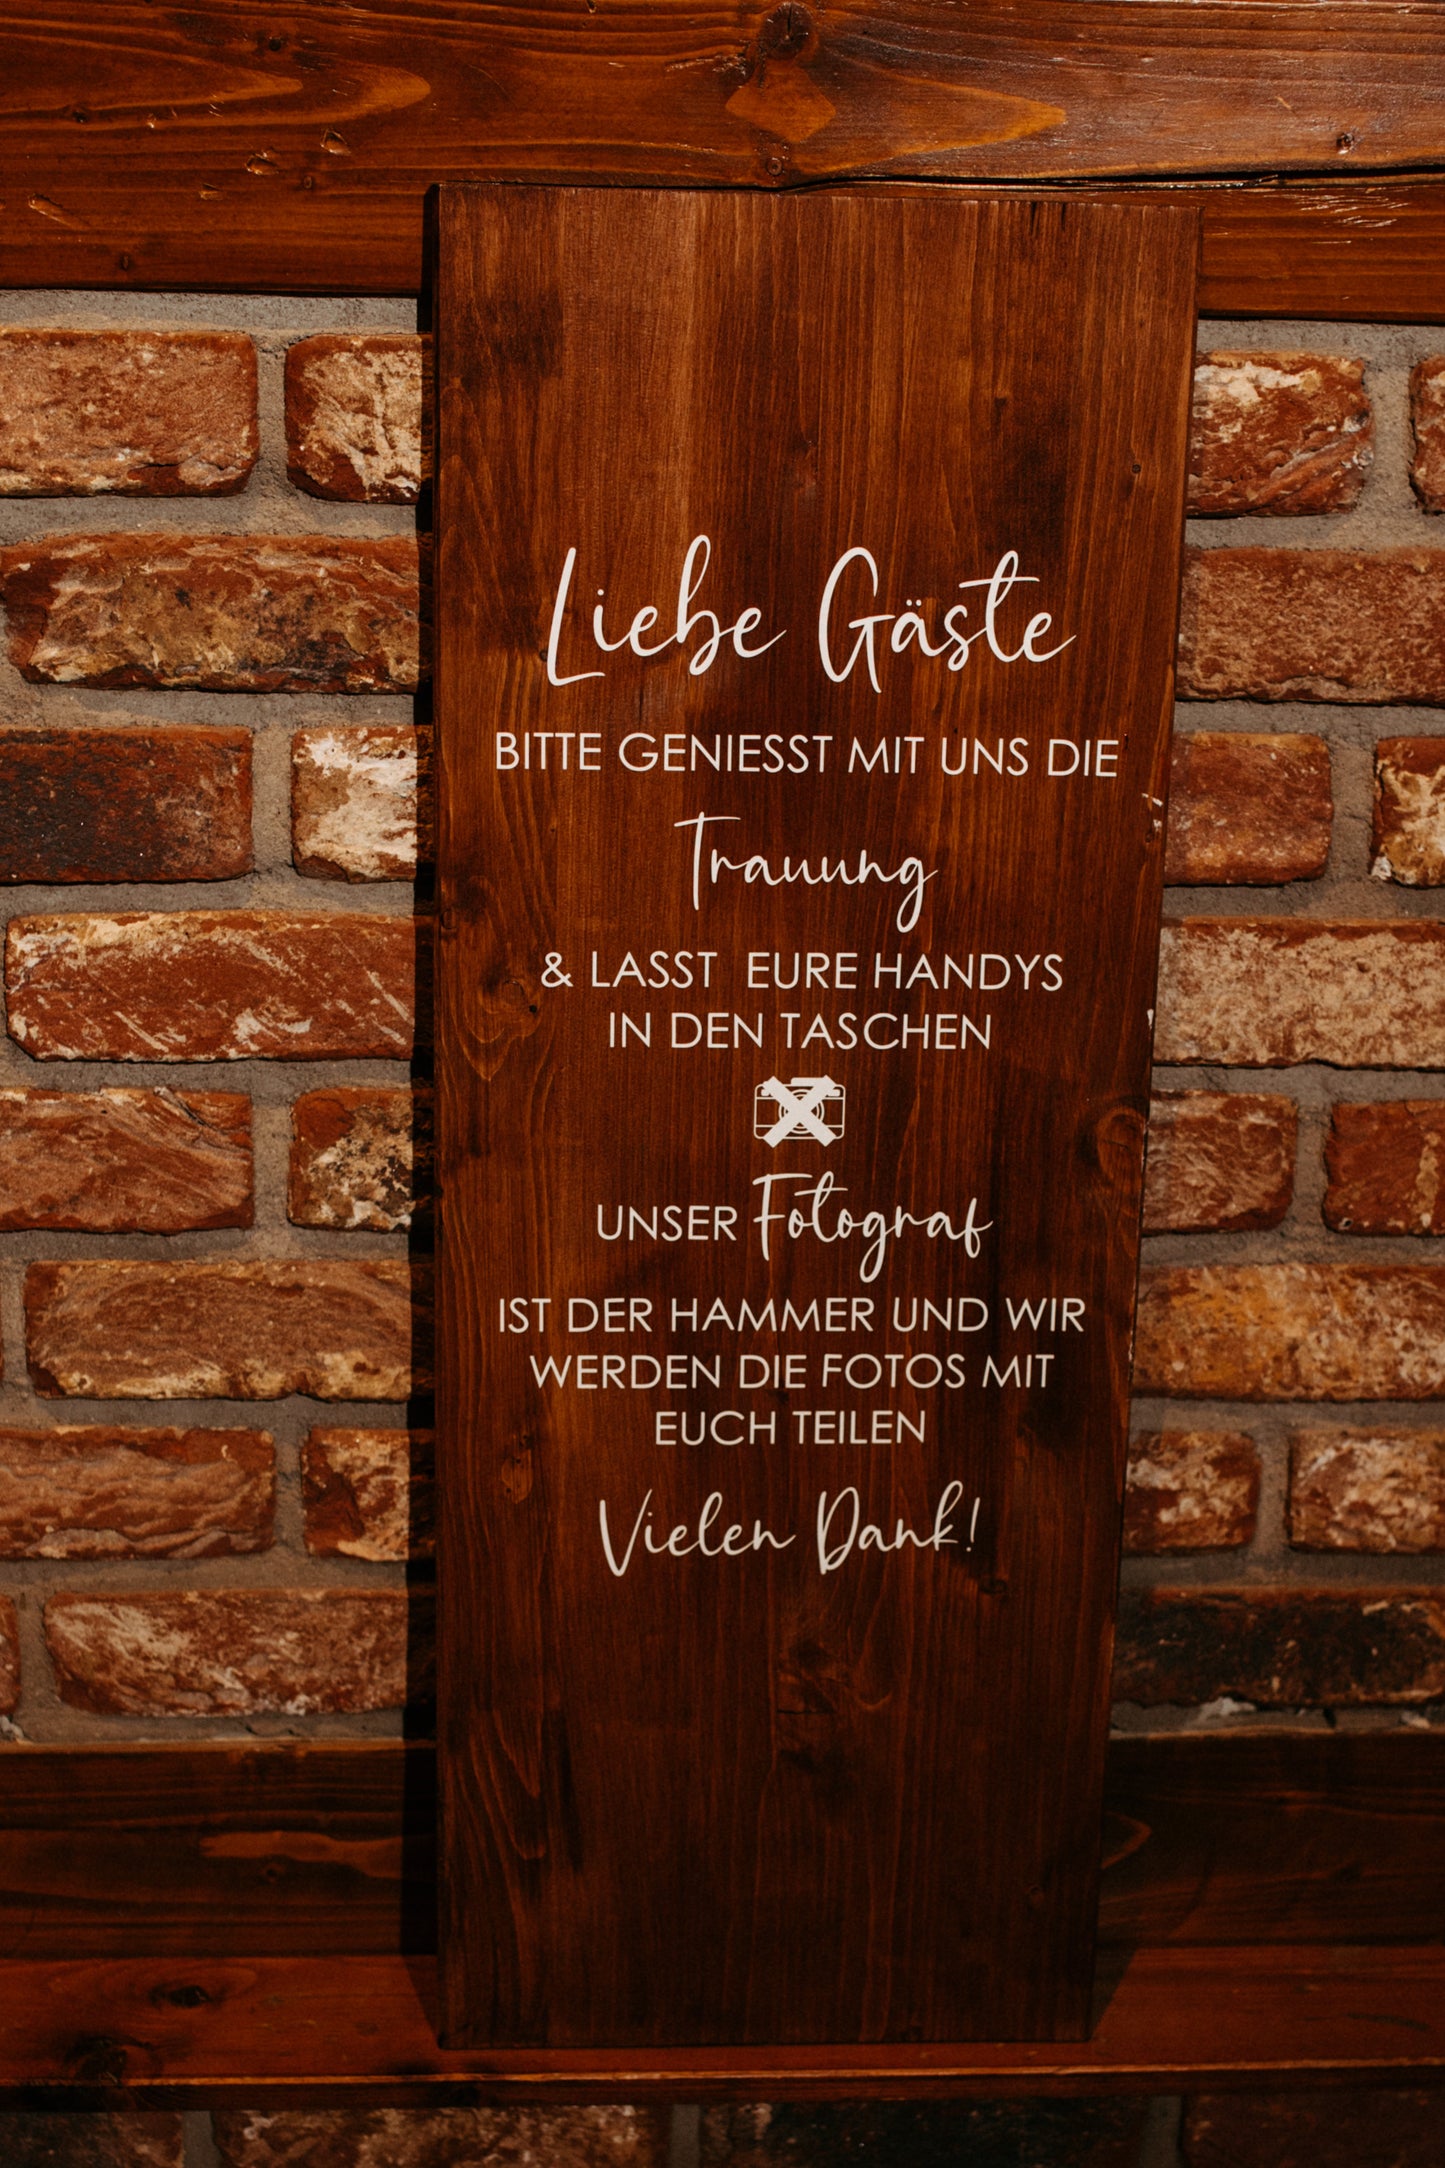 Liebe Gäste
BITTE GENIESST MIT UNS DIE
Trauung
& LASST EURE HANDYS
IN DEN TASCHEN
UNSER Fotograf
IST DER HAMMER UND WIR
WERDEN DIE FOTOS MIT
EUCH TEILEN
Vielen Dank!